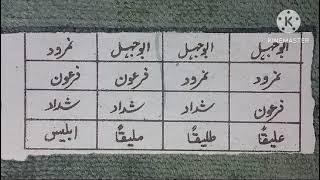 ابوجہل ابوجہل ابوجہل نمرود
نمرود نمرود فرعون فرعون
فرعون شداد شداد شداد
علیقاً طلیقاً ملیقاً ابلیس
KINEMASTER